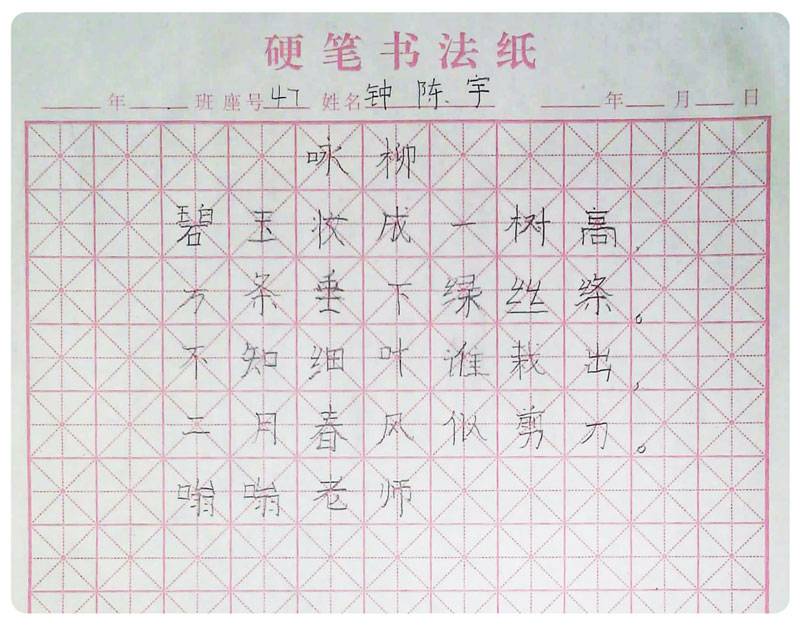 硬笔书法纸
年 班 座号 47 姓名 钟陈宇 年 月 日
咏柳
碧玉妆成一树高，
万条垂下绿丝绦。
不知细叶谁裁出，
二月春风似剪刀。
嗡嗡老师